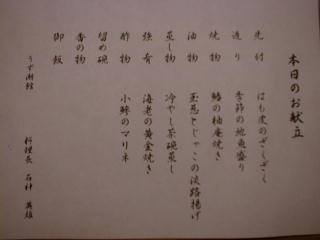 本日のお献立
先付 はも皮のざくざく
造り 季節の地魚盛り
焼物 鰆の柚庵焼き
油物 玉葱とじゃこの淡路揚げ
蒸し物 冷やし茶碗蒸し
強肴 海老の黄金焼き
酢物 小鯵のマリネ
留め碗
香の物
御飯
うず潮館
料理長 石神 英雄